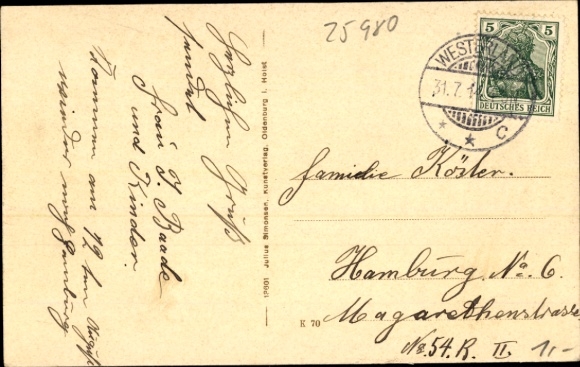 Herzlichen Gruß
sendet
Frau J. Baade
und Kinder.
Kommen am 12ten August
wieder nach Hamburg
12801 Julius Simonsen, Kunstverlag, Oldenburg i. Holst
25980
5 5
DEUTSCHES REICH
WESTERLAND
31.7.1
* * C
Familie Köster.
Hamburg. No. 6.
Magarethenstrasse
No. 54. R. II.
1,-
K 70